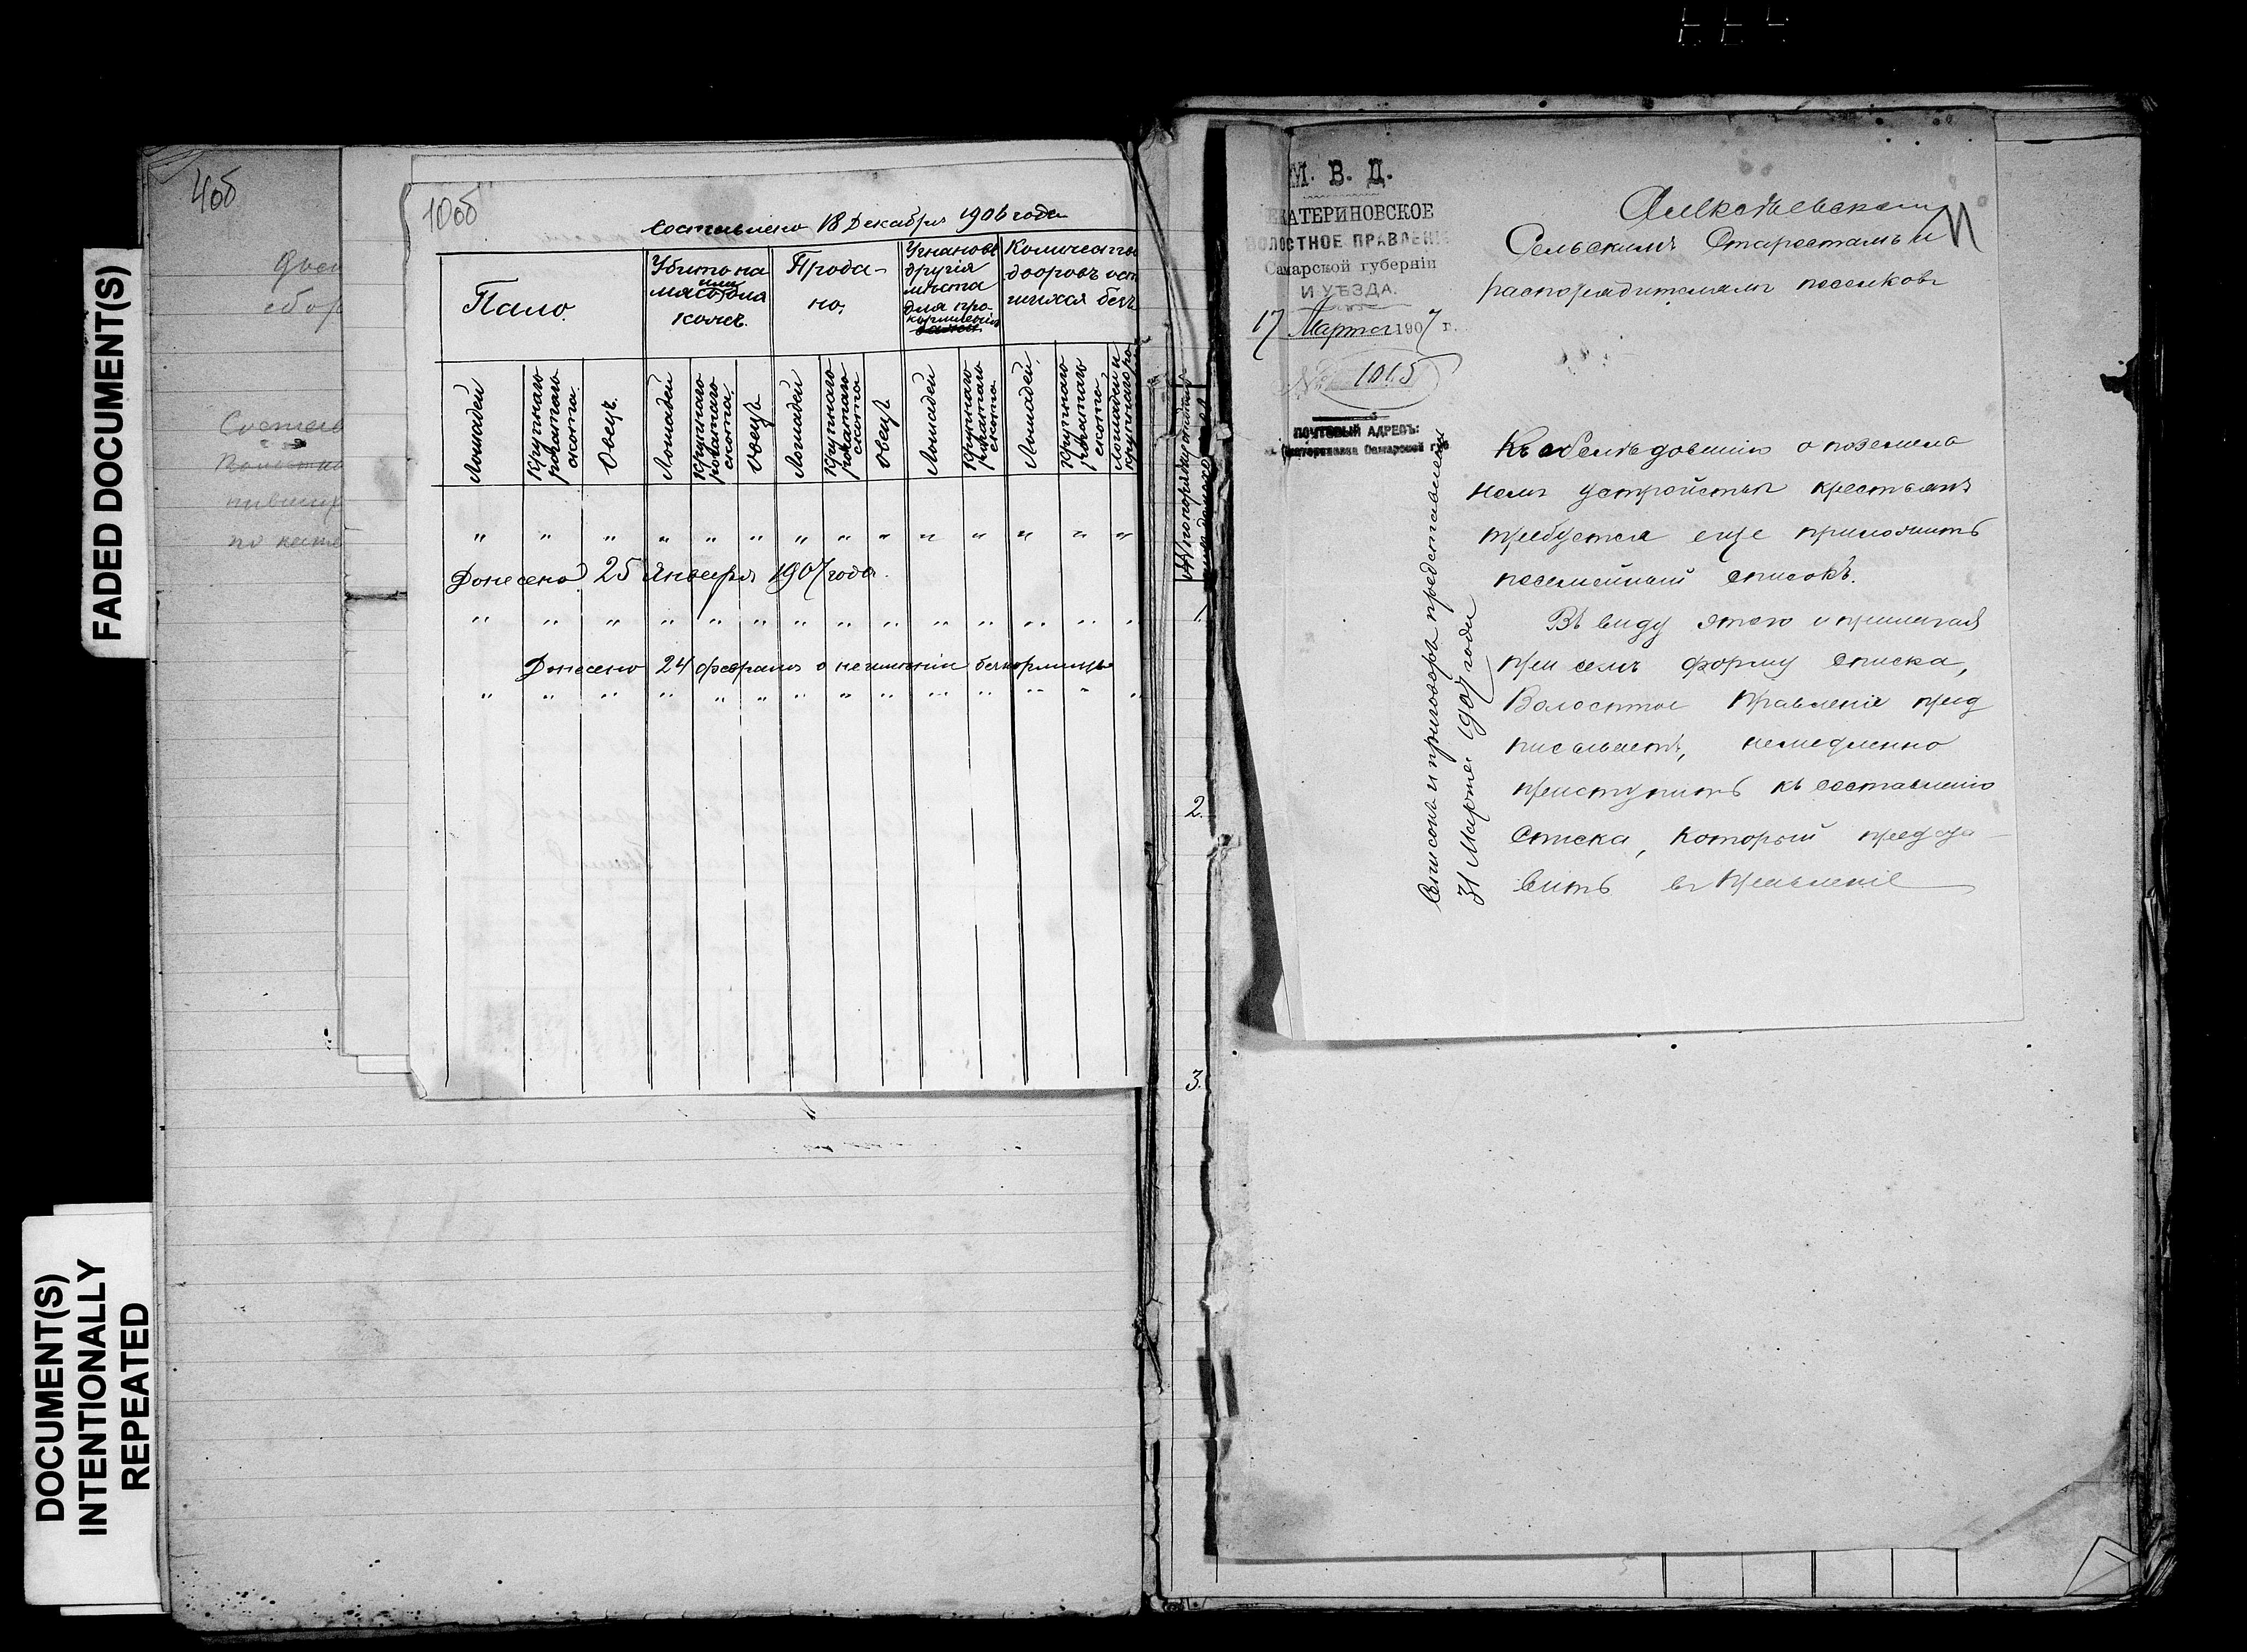 FADED DOCUMENT(S)
DOCUMENT(S)
INTENTIONALLY
REPEATED
4об
10об
Составлено 18 Декабря 1906 года
Пало.
Убито на
или
мясо для
кожъ.
Прода-
но.
Угнано въ
другія
мѣста
для про
кормленія
Количество
дворовъ ост
шихся безъ
Лошадей
Крупнаго
рогатаго
скота.
Овецъ.
Лошадей
Крупнаго
рогатаго
скота.
Овецъ
Лошадей
Крупнаго
рогатаго
скота
Овецъ
Лошадей
Крупнаго
рогатаго
скота
Лошадей
Крупнаго
рогатаго
скота
Лошадей и
крупнаго ро
" " " " " " " " " " " " " "
Донесено 25 Января 1907 года.
" " " " " " " " " " " " " "
Донесено 24 февраля о неимѣніи
" " " " " " " " " " " " " "
1.
2.
3.
М. В. Д.
ЕКАТЕРИНОВСКОЕ
ВОЛОСТНОЕ ПРАВЛЕНІЕ
Самарской губерніи
И УѢЗДА.
17 Марта 1907 г.
№ 1015
ПОЧТОВЫЙ АДРЕСЪ:
с. Екатериновка Самарской губ
Сельскимъ Старостамъ и
распорядителямъ поселковъ
Къ обслѣдованію о поземель
номъ устройствѣ крестьянъ
требуется еще приложить
посемейный списокъ.
Въ виду этого и прилагая
при семъ форму списка,
Волостное Правленіе пред
писываетъ, немедленно
приступить къ составленію
Списка, который предста
вить въ Правленіе
Списокъ и приговоръ представлены
31 Марта 1907 года